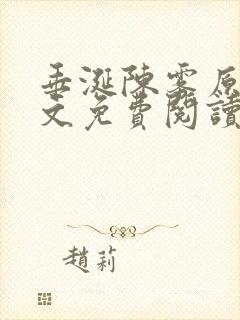 垂涎陳霁原
文免費閱讀
趙莉